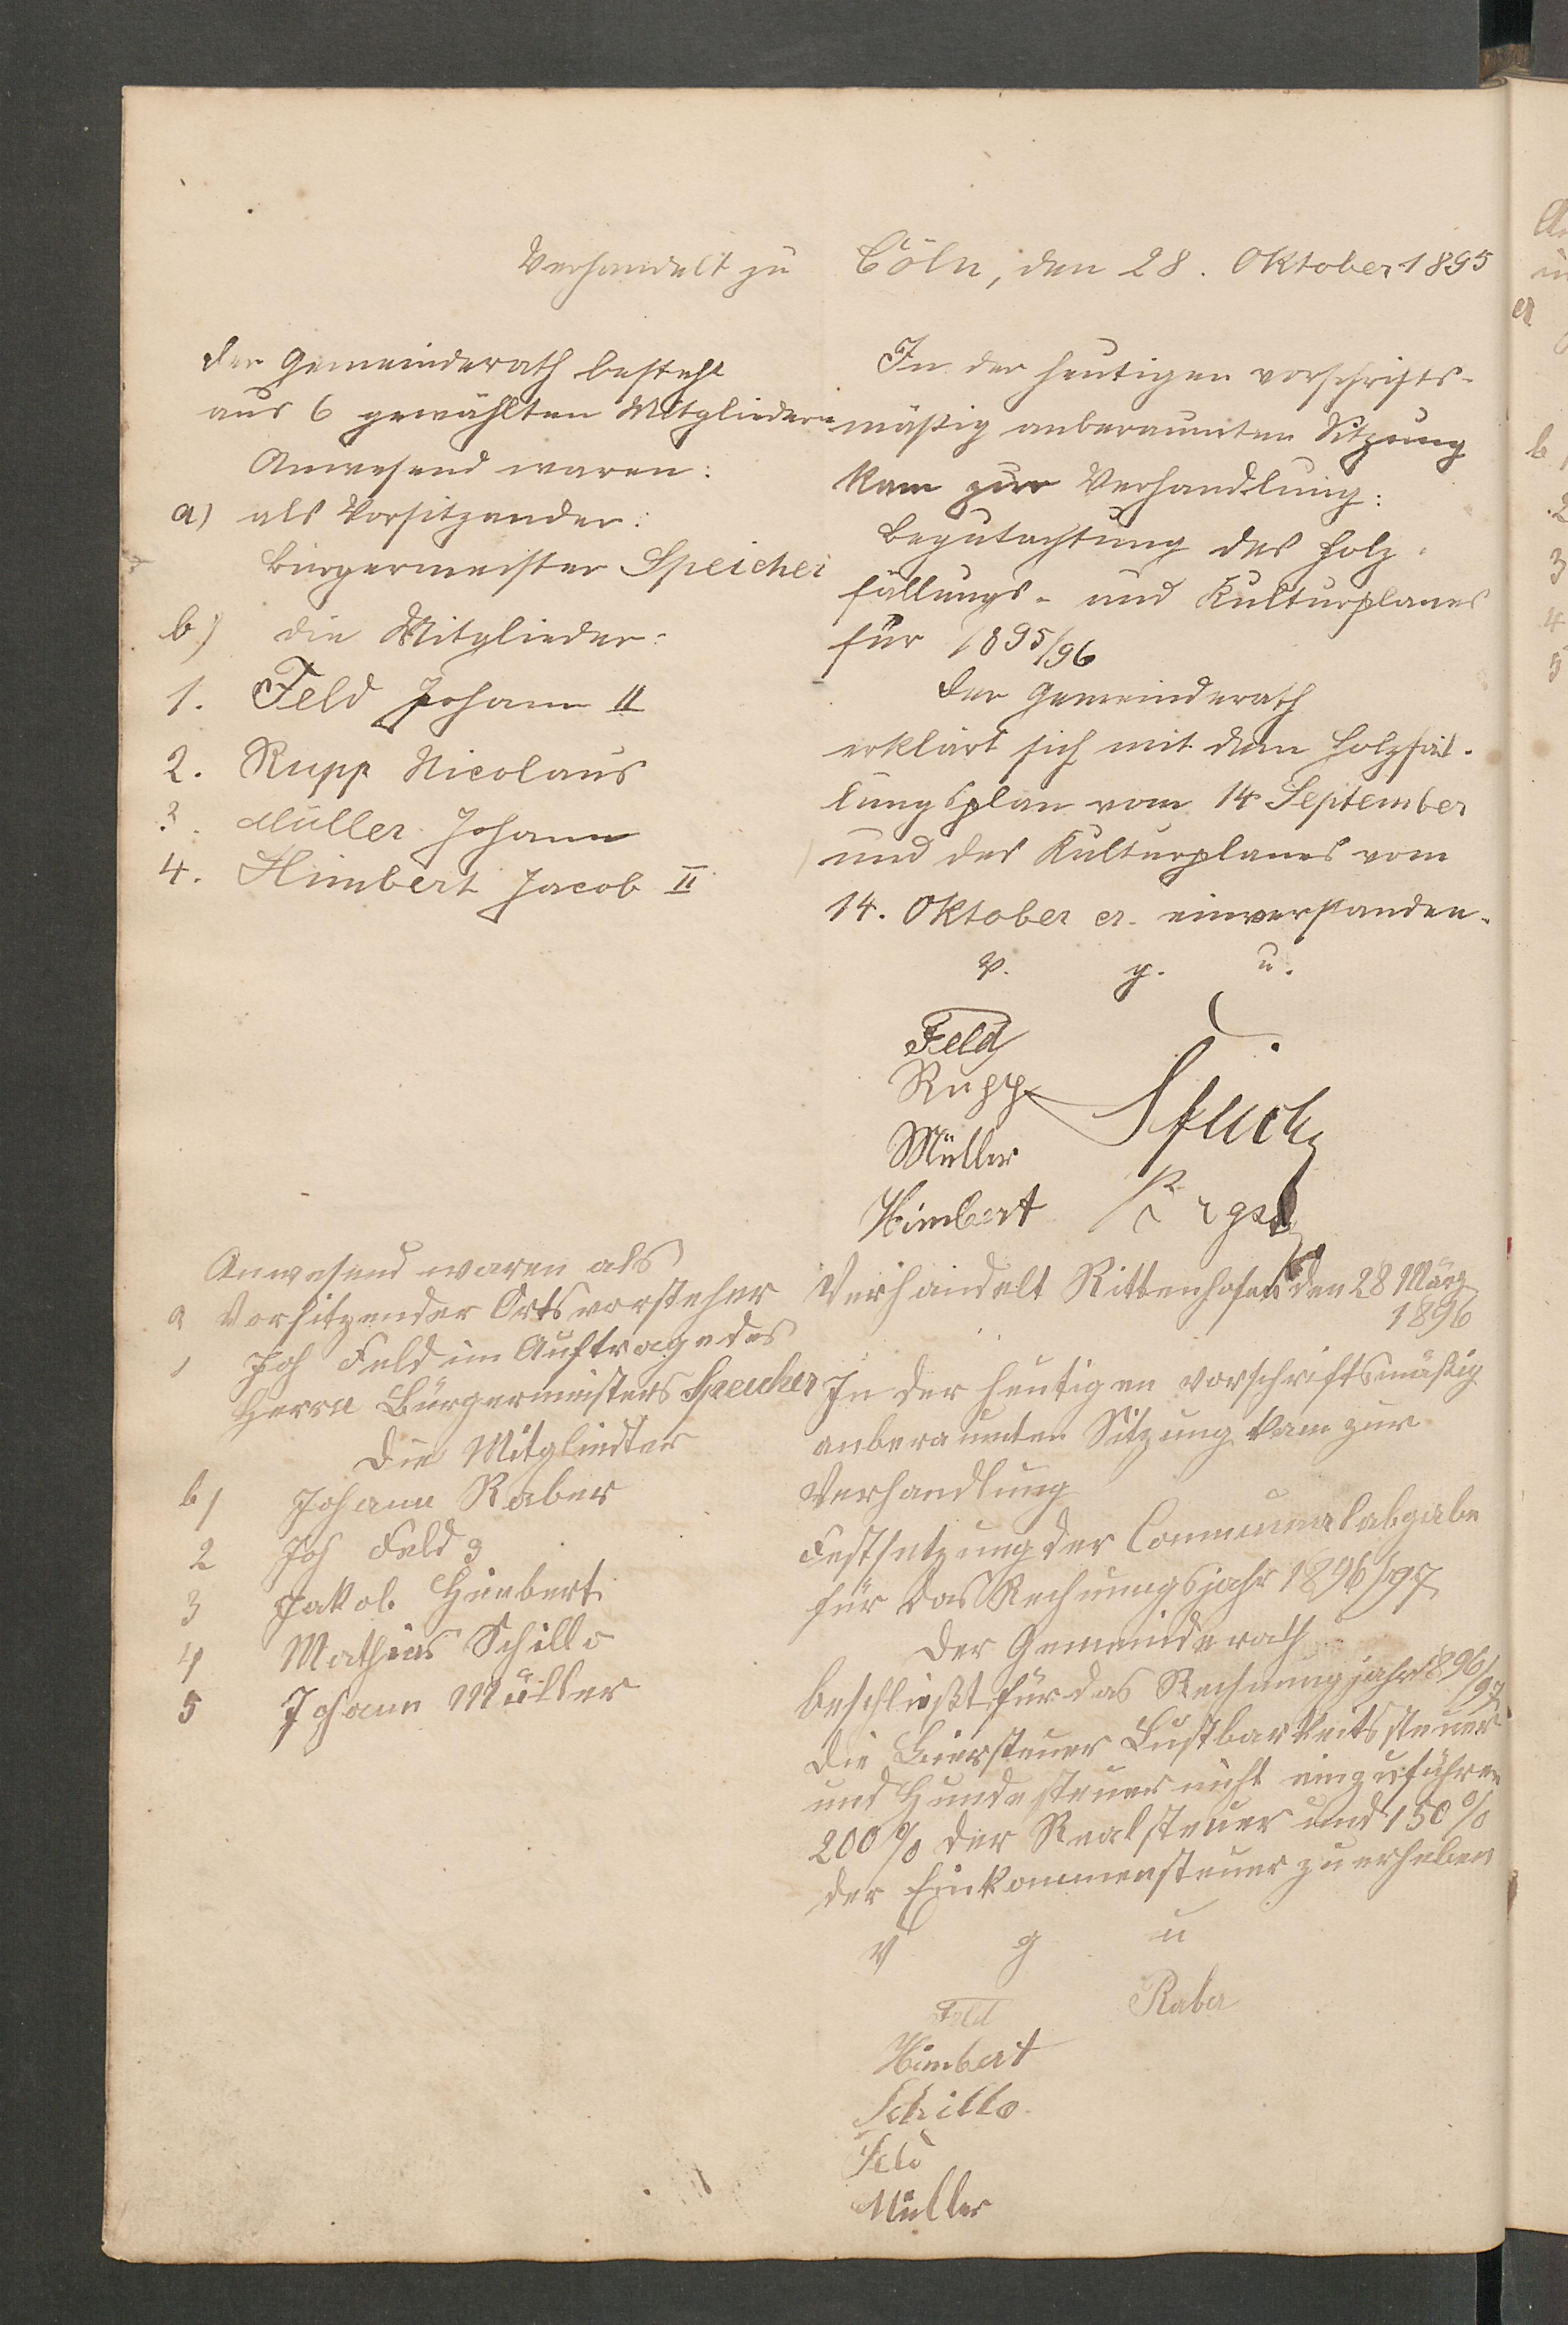 Verhandelt zu Cöln, den 28. Oktober 1895
Der Gemeinderath besteht
aus 6 gewählten Mitgliedern
Anwesend waren:
a) als Vorsitzender:
Bürgermeister Speicher
b) die Mitglieder:
1. Feld Johann II
2. Rupp Nicolaus
3. Müller Johann
4. Himbert Jacob II
In der heutigen vorschrifts-
mäßig anberaumten Sitzung
kam zur Verhandlung:
Begutachtung des Holz-
fällungs- und Kulturplanes
für 1895/96
Der Gemeinderath
erklärt sich mit dem Holzfäl-
lungsplan vom 14 September
und des Kulturplanes vom
14. Oktober cr. einverstanden.
v. g. u.
Feld
Rupp
Speicher
Müller
Himbert
Anwesend waren als
a Vorsitzender Ortsvorsteher
1 Joh Feld im Auftrage des
Herrn Bürgermeisters Speicher
Die Mitglieder
b) Johann Raber
2 Joh Feld 3
3 Jakob Himbert
4 Mathias Schillo
5 Johann Müller
Verhandelt Rittenhofen den 28 März
1896
In der heutigen vorschriftsmäßig
anberaumten Sitzung kam zur
Verhandlung
Festsetzung der Communalabgabe
für das Rechnungsjahr 1896/97
Der Gemeinderath
beschließt für das Rechnungjahr 1896/97
die Biersteuer Lustbarkeitssteuer
und Hundesteuer nicht einzuführen
200% der Realsteuer und 150%
der Einkommensteuer zu erheben
v g u
Feld Raber
Himbert
Schillo
Feld
Müller